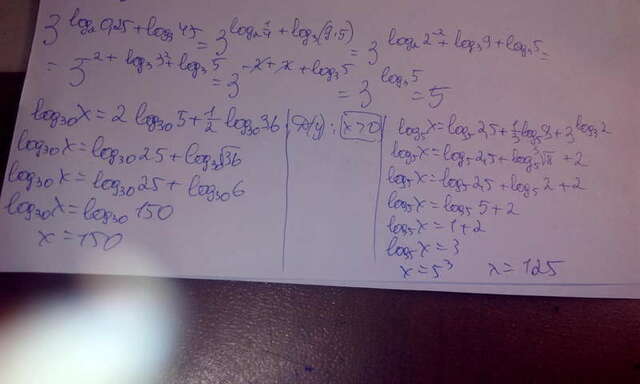 3^(log₂ 0,25 + log₃ 45) = 3^(log₂ 1/4 + log₃(9·5)) = 3^(log₂ 2⁻² + log₃ 9 + log₃ 5) =
= 3^(2 + log₃ 3² + log₃ 5) = 3^(-2 + 2 + log₃ 5) = 3^(log₃ 5) = 5
log₃₀ x = 2 log₃₀ 5 + 1/2 log₃₀ 36
log₃₀ x = log₃₀ 25 + log₃₀ √36
log₃₀ x = log₃₀ 25 + log₃₀ 6
log₃₀ x = log₃₀ 150
x = 150
x>0
log₅ x = log₅ 2,5 + 1/3 log₅ 8 + 3^(log₃ 2)
log₅ x = log₅ 2,5 + log₅ ∛8 + 2
log₅ x = log₅ 2,5 + log₅ 2 + 2
log₅ x = log₅ 5 + 2
log₅ x = 1 + 2
log₅ x = 3
x = 5³ x = 125